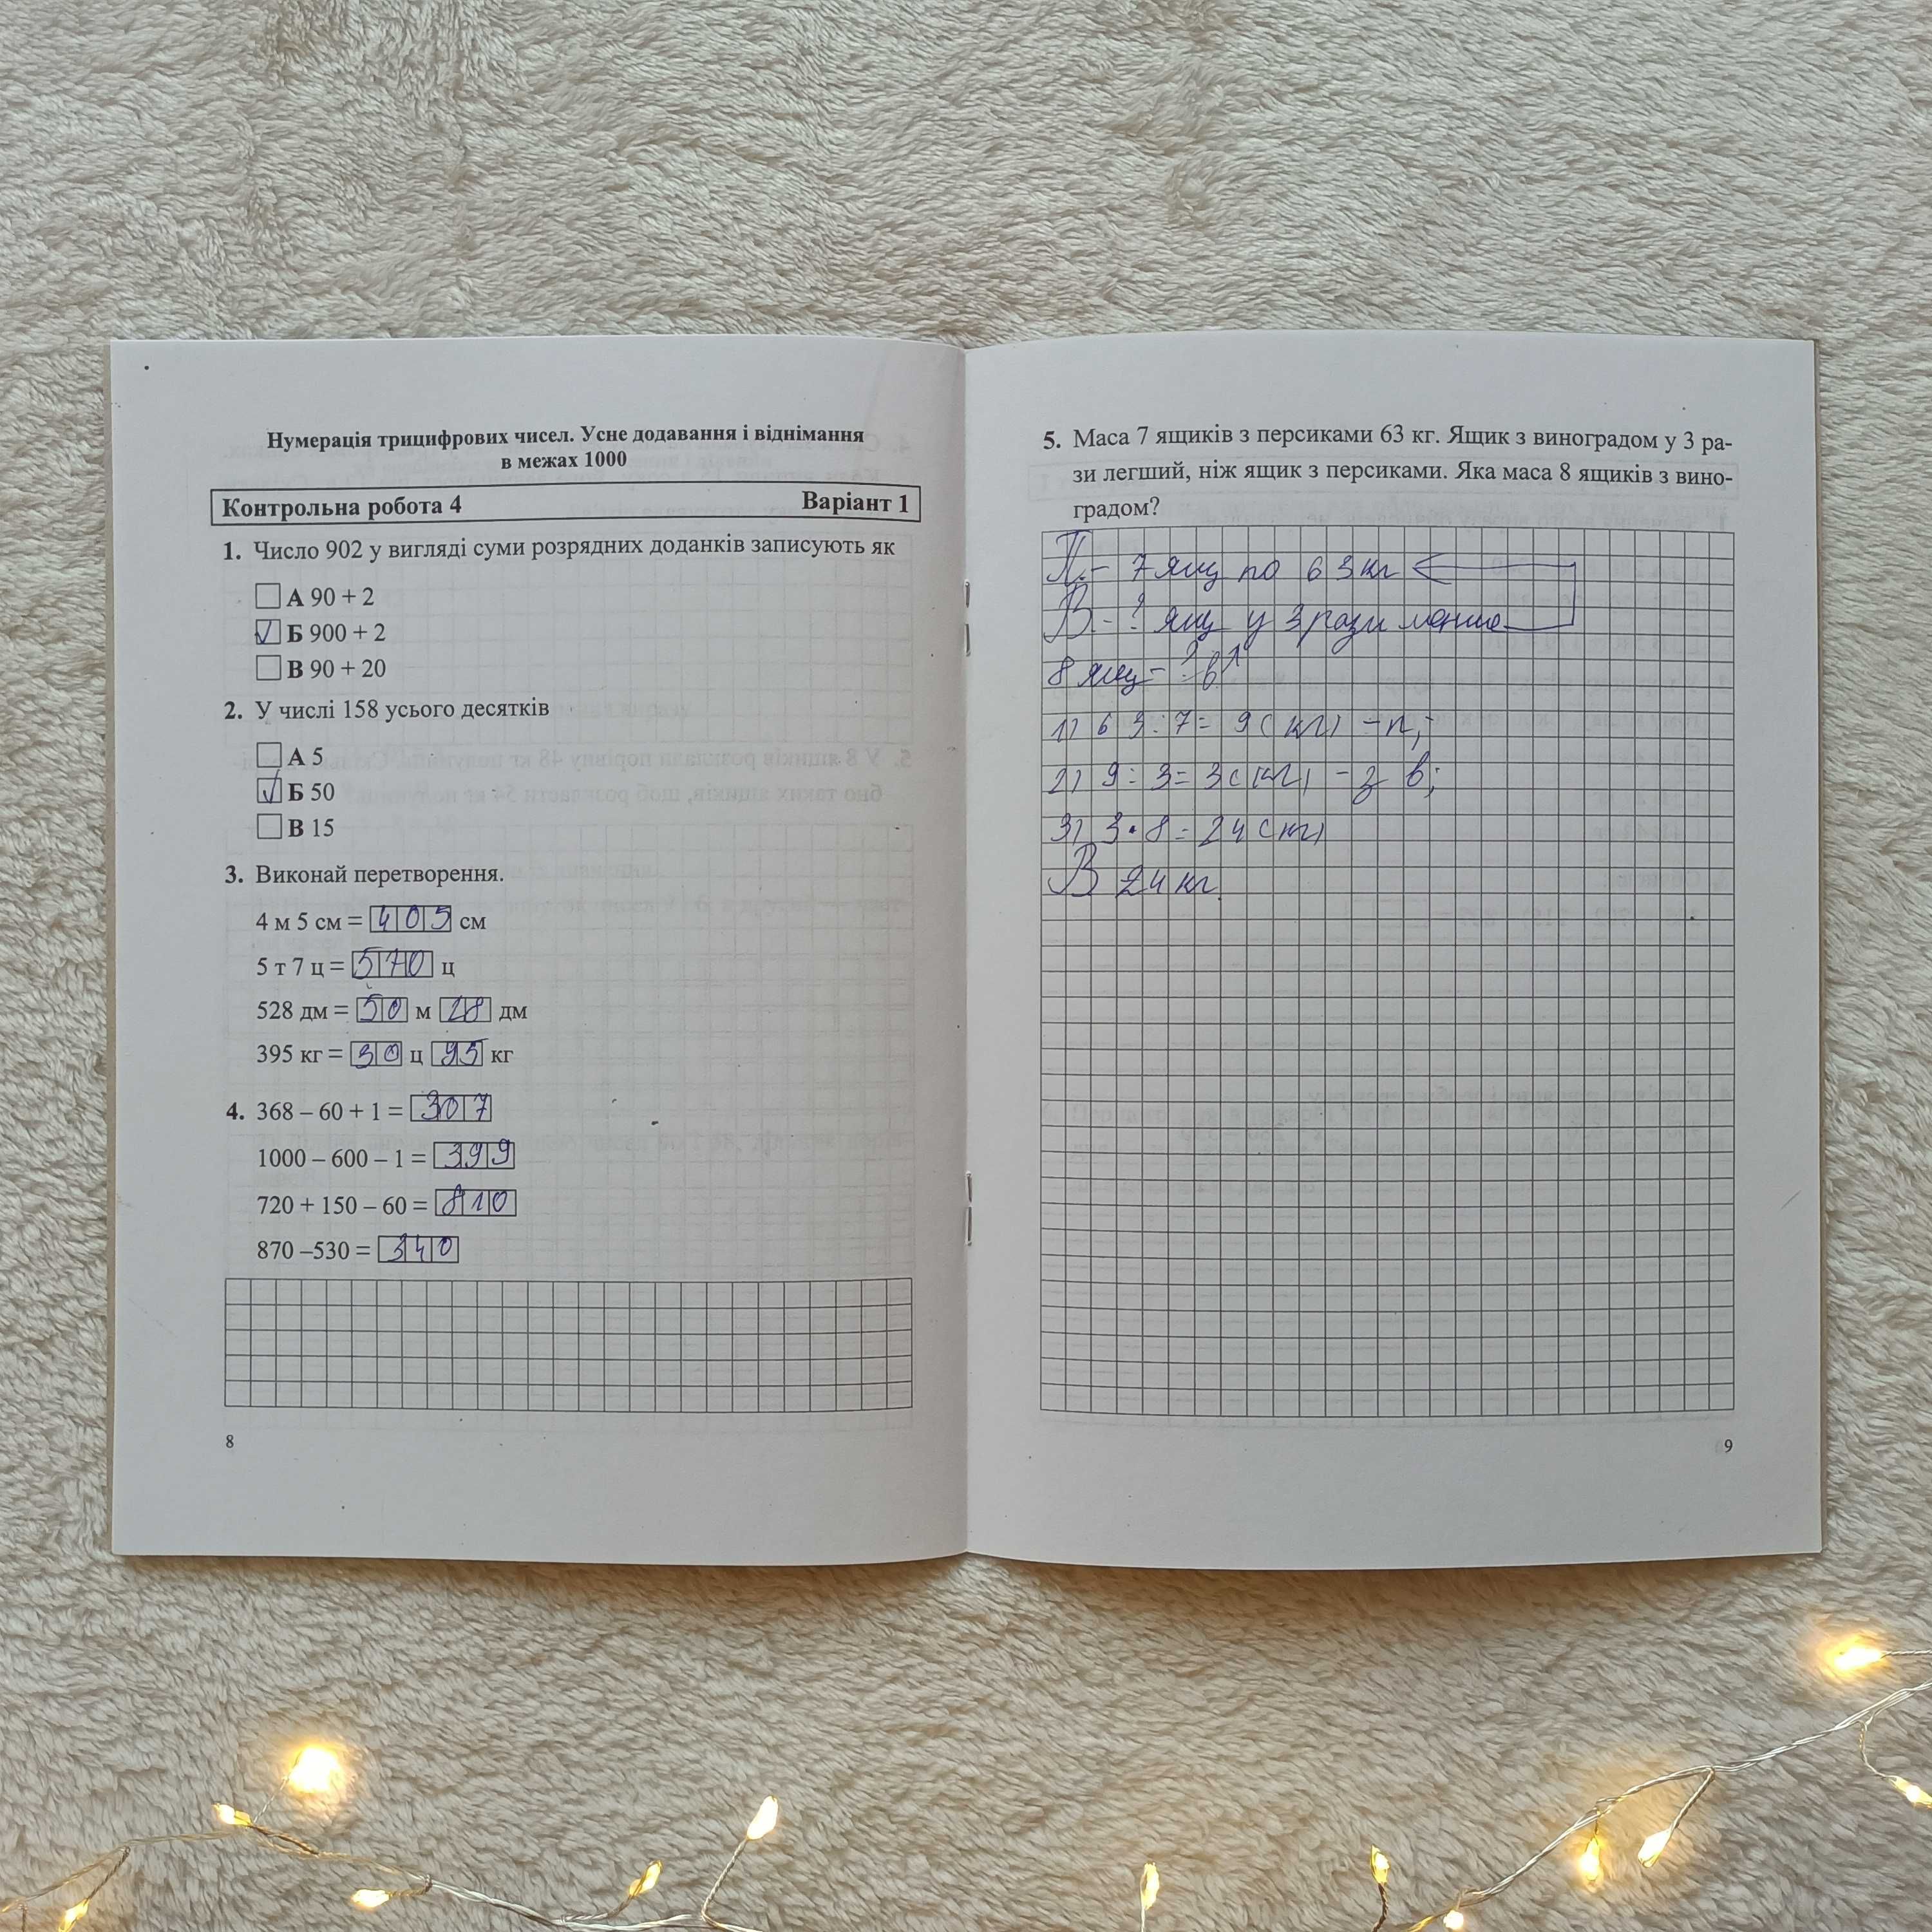 Нумерація трицифрових чисел. Усне додавання і віднімання
в межах 1000
Контрольна робота 4 Варіант 1
1. Число 902 у вигляді суми розрядних доданків записують як
А 90 + 2
✓ Б 900 + 2
В 90 + 20
2. У числі 158 усього десятків
А 5
✓ Б 50
В 15
3. Виконай перетворення.
4 м 5 см = 405 см
5 т 7 ц = 570 ц
528 дм = 50 м 28 дм
395 кг = 30 ц 95 кг
4. 368 – 60 + 1 = 307
1000 – 600 – 1 = 399
720 + 150 – 60 = 810
870 –530 = 340
8
5. Маса 7 ящиків з персиками 63 кг. Ящик з виноградом у 3 ра-
зи легший, ніж ящик з персиками. Яка маса 8 ящиків з вино-
градом?
П. - 7 ящ по 63 кг
В. - ? ящ у 3 рази менше
8 ящ - ?
1) 63 : 7 = 9 (кг) - п;
2) 9 : 3 = 3 (кг) - з в;
3) 3 · 8 = 24 (кг)
В 24 кг.
9